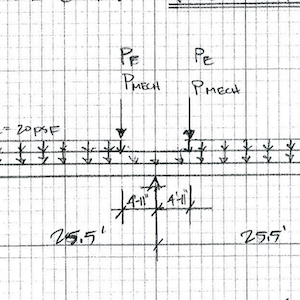 PE PE
PMECH PMECH
= 20 PSF
4'-11" 4'-11"
25.5' 25.5'